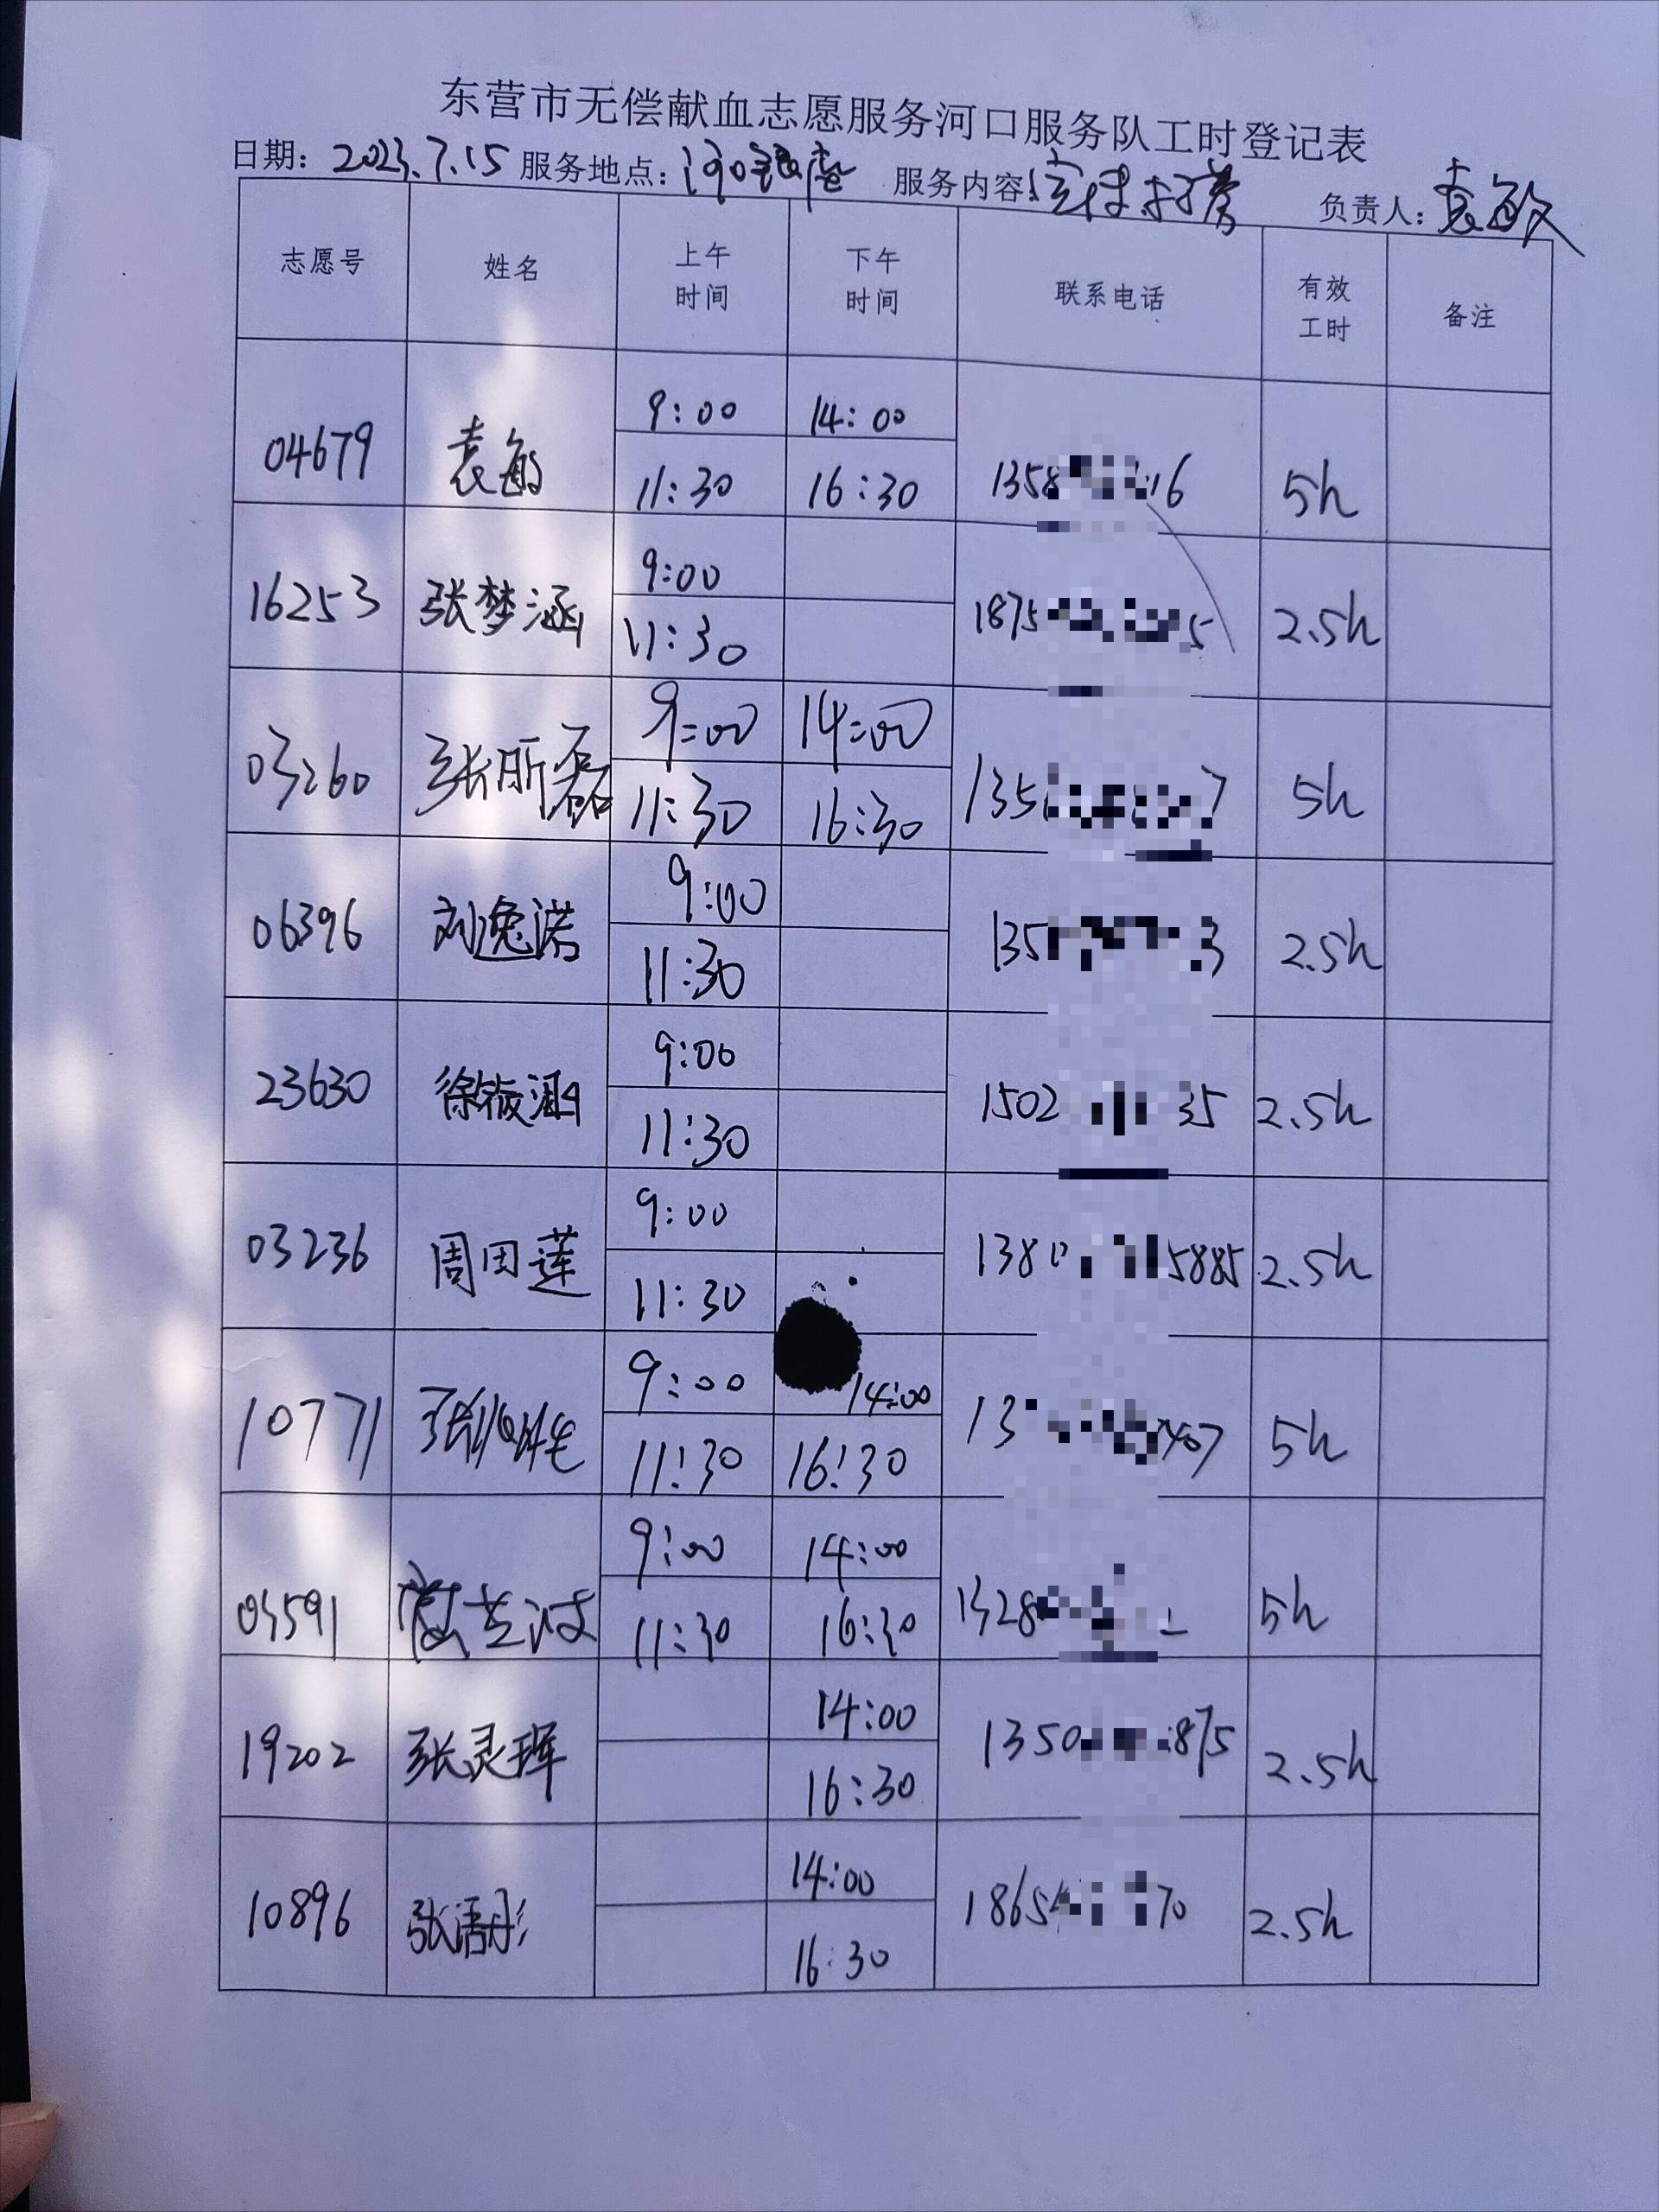 东营市无偿献血志愿服务河口服务队工时登记表
日期: 2023.7.15 服务地点: 河口银座 服务内容: 宣传招募 负责人: 袁敏
志愿号 姓名 上午时间 下午时间 联系电话 有效工时 备注
04679 袁敏 9:00 14:00 5h
11:30 16:30
16253 张梦涵 9:00 2.5h
11:30
03260 张昕磊 9:00 14:00 5h
11:30 16:30
06396 刘逸诺 9:00 2.5h
11:30
23630 徐 涵 9:00 2.5h
11:30
03236 周田莲 9:00 2.5h
11:30
10771 张 9:00 14:00 5h
11:30 16:30
03591 9:00 14:00 5h
11:30 16:30
19202 张灵珲 14:00 2.5h
16:30
10896 张语彤 14:00 2.5h
16:30